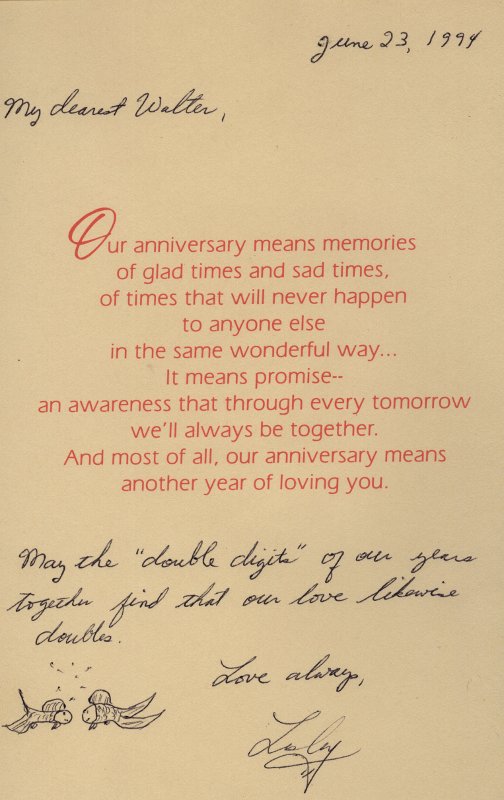 June 23, 1994
My dearest Walter,
Our anniversary means memories
of glad times and sad times,
of times that will never happen
to anyone else
in the same wonderful way...
It means promise--
an awareness that through every tomorrow
we'll always be together.
And most of all, our anniversary means
another year of loving you.
May the "double digits" of our years
together find that our love likewise
doubles.
Love always,